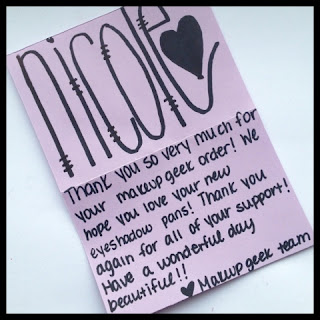 nicole
Thank you so very much for
your makeup geek order! We
hope you love your new
eyeshadow pans! Thank you
again for all of your support!
Have a wonderful day
beautiful!!
♥ Makeup geek team